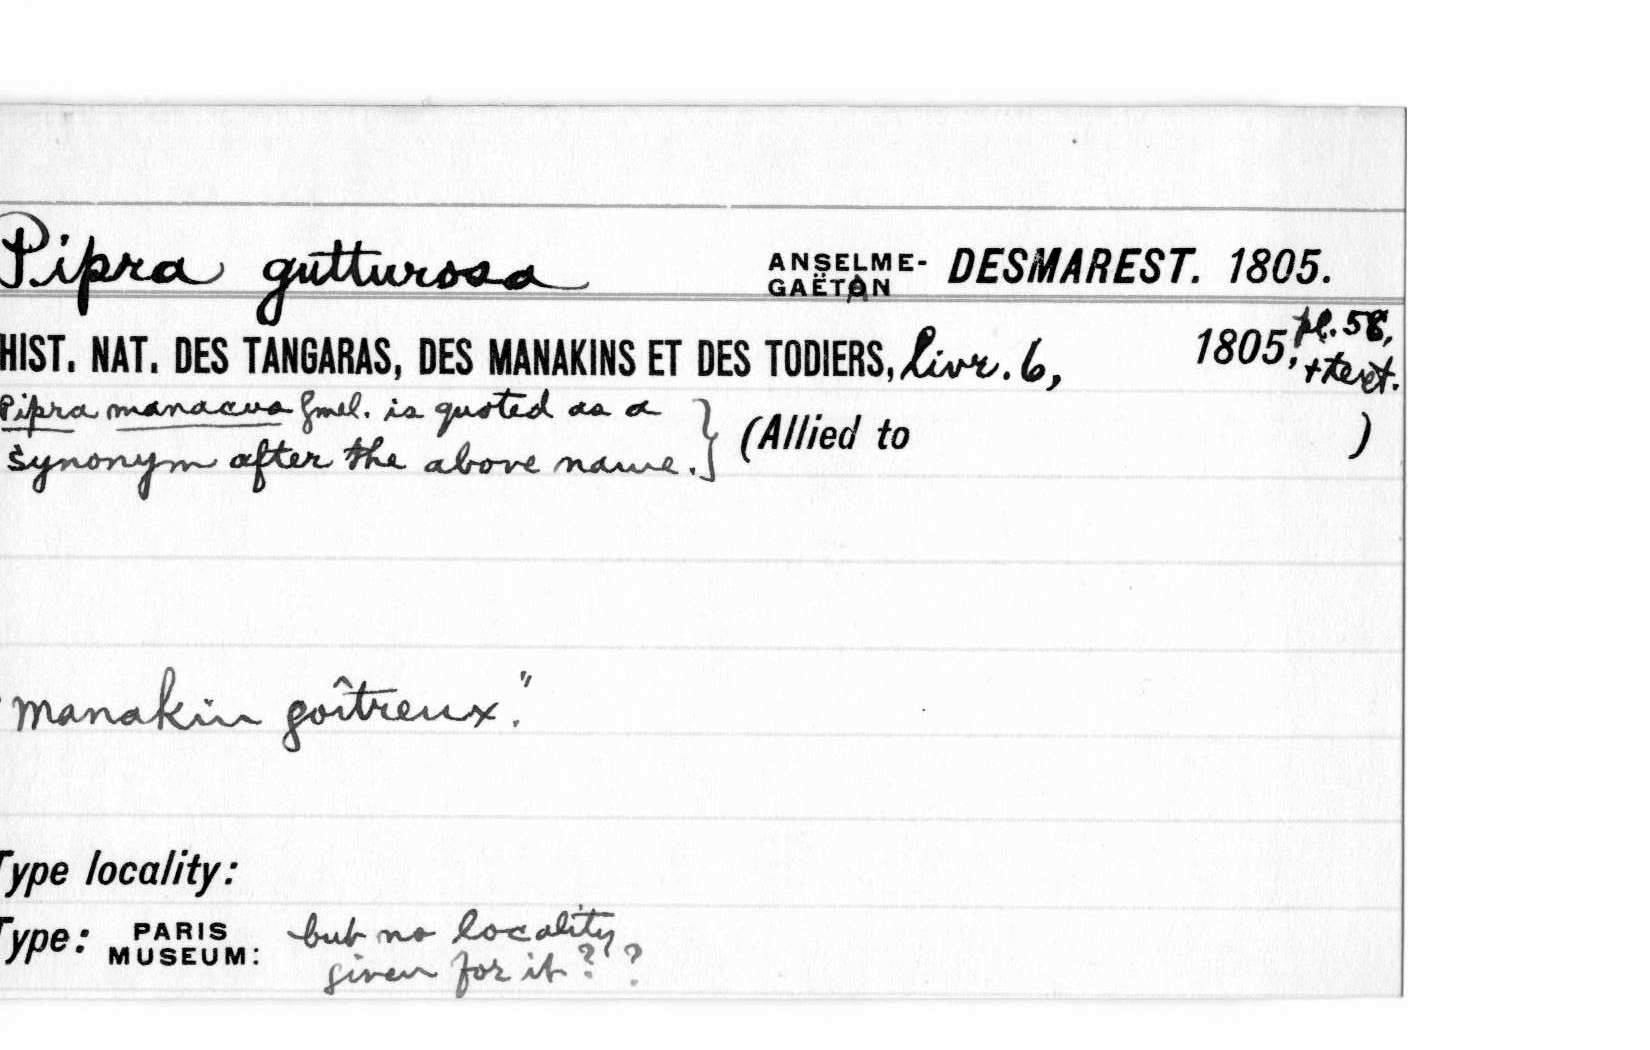 Pipra gutturosa ANSELME-GAËTAN DESMAREST. 1805.
HIST. NAT. DES TANGARAS, DES MANAKINS ET DES TODIERS, livr. 6, 1805, pl. 58, + text.
Pipra manacus Gmel. is quoted as a
synonym after the above name.} (Allied to )
"manakin goîtreux."
Type locality:
Type: PARIS MUSEUM: but no locality
given for it??